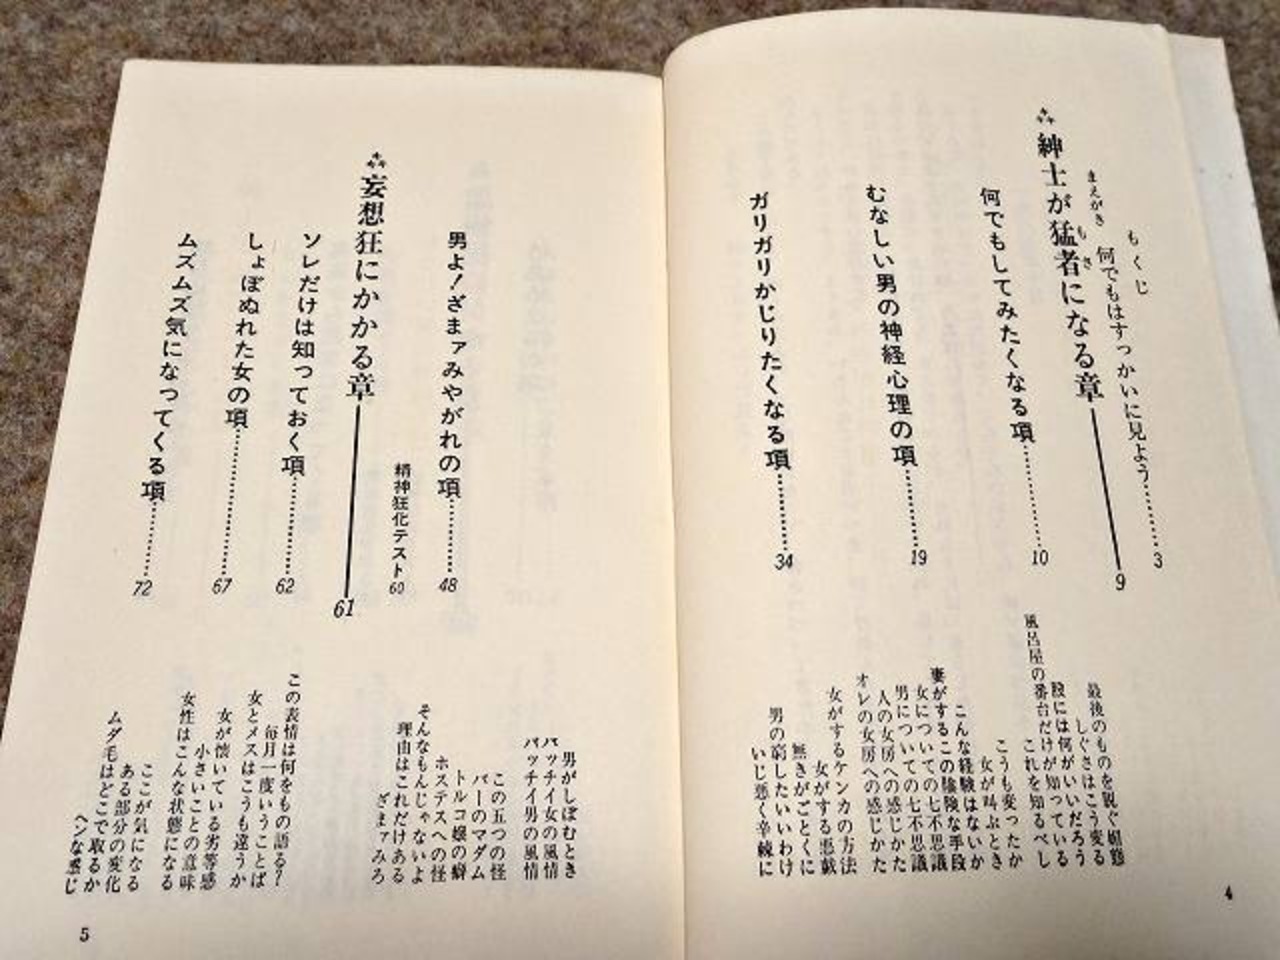 もくじ
まえがき 何でもはすっかいに見よう 3
紳士が猛者になる章 9
もさ
何でもしてみたくなる項 10
最後のものを脱ぐ姐難
しぐさはこう変る
股には何がいいだろう
風呂屋の番台だけが知っている
これを知るべし
むなしい男の神経心理の項 19
こうも変ったか
女が叫ぶとき
こんな経験はないか
妻がするこの陰険な手段
女についての七不思議
男についての七不思議
人の女房への感じかた
オレの女房への感じかた
ガリガリかじりたくなる項 34
女がするケンカの方法
女がする悪戯
無きがごとくに
男の窮したいいわけ
いじ悪く辛辣に
4
男よ!ざまァみやがれの項 48
男がしぼむとき
バッチイ女の風情
バッチイ男の風情
この五つの怪
バーのマダム
トルコ嬢の癖
ホステスへの怪
そんなもんじゃないよ
理由はこれだけある
ざまァみろ
精神狂化テスト 60
妄想狂にかかる章 61
ソレだけは知っておく項 62
この表情は何をもの語る?
毎月一度いうことば
女とメスはこうも違うか
しょぼぬれた女の項 67
女が懐いている劣等感
小さいことの意味
女性はこんな状態になる
ムズムズ気になってくる項 72
ここが気になる
ある部分の変化
ムダ毛はどこで取るか
ヘンな感じ
5